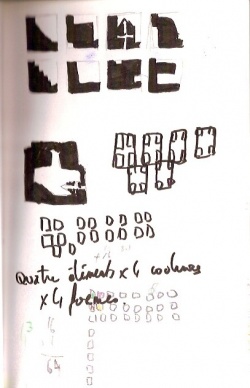 Quatre éléments x 4 couleurs
x 4 formes
16
64